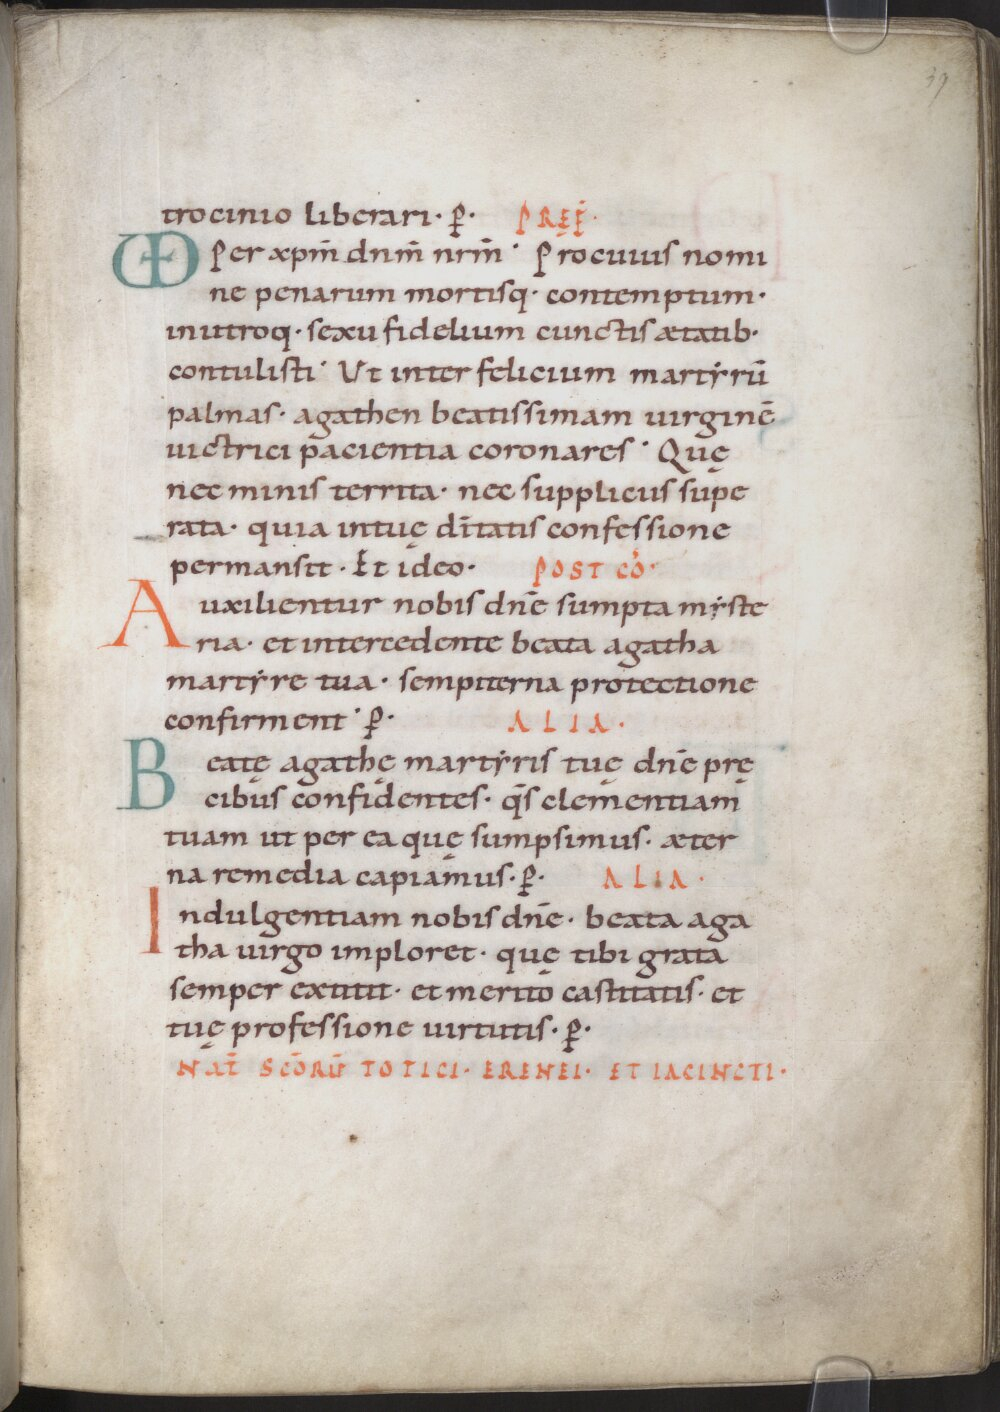 39
trocinio liberari· ꝑ· PREF̄·
VD Per xpm̄ dnm̄ nrm̄· Pro cuius nomi
ne penarum mortisq· contemptum·
in utroq· sexu fidelium cunctis ætatib·
contulisti· Ut inter felicium martẏrū
palmas· agathen beatissimam uirginē
uictrici pacientia coronares· Quę
nec minis territa· nec suppliciis supe
rata· quia in tuę diītatis confessione
permansit· Et ideo· POST CŌ·
Auxilientur nobis dn̄e sumpta mẏste
ria· et intercedente beata agatha
martẏre tua· sempiterna protectione
confirment· ꝑ· ALIA·
Beatę agathę martẏris tuę dn̄e prę
cibus confidentes· q̄s clementiam
tuam ut per ea quę sumpsimus· æter
na remedia capiamus· ꝑ· ALIA·
Indulgentiam nobis dn̄e· beata aga
tha uirgo imploret· quę tibi grata
semper extitit· et merito castitatis· et
tuę professione uirtutis· ꝑ·
NAT̄ SCŌRŪ TOTICI· ERENEI· ET IACINCTI·